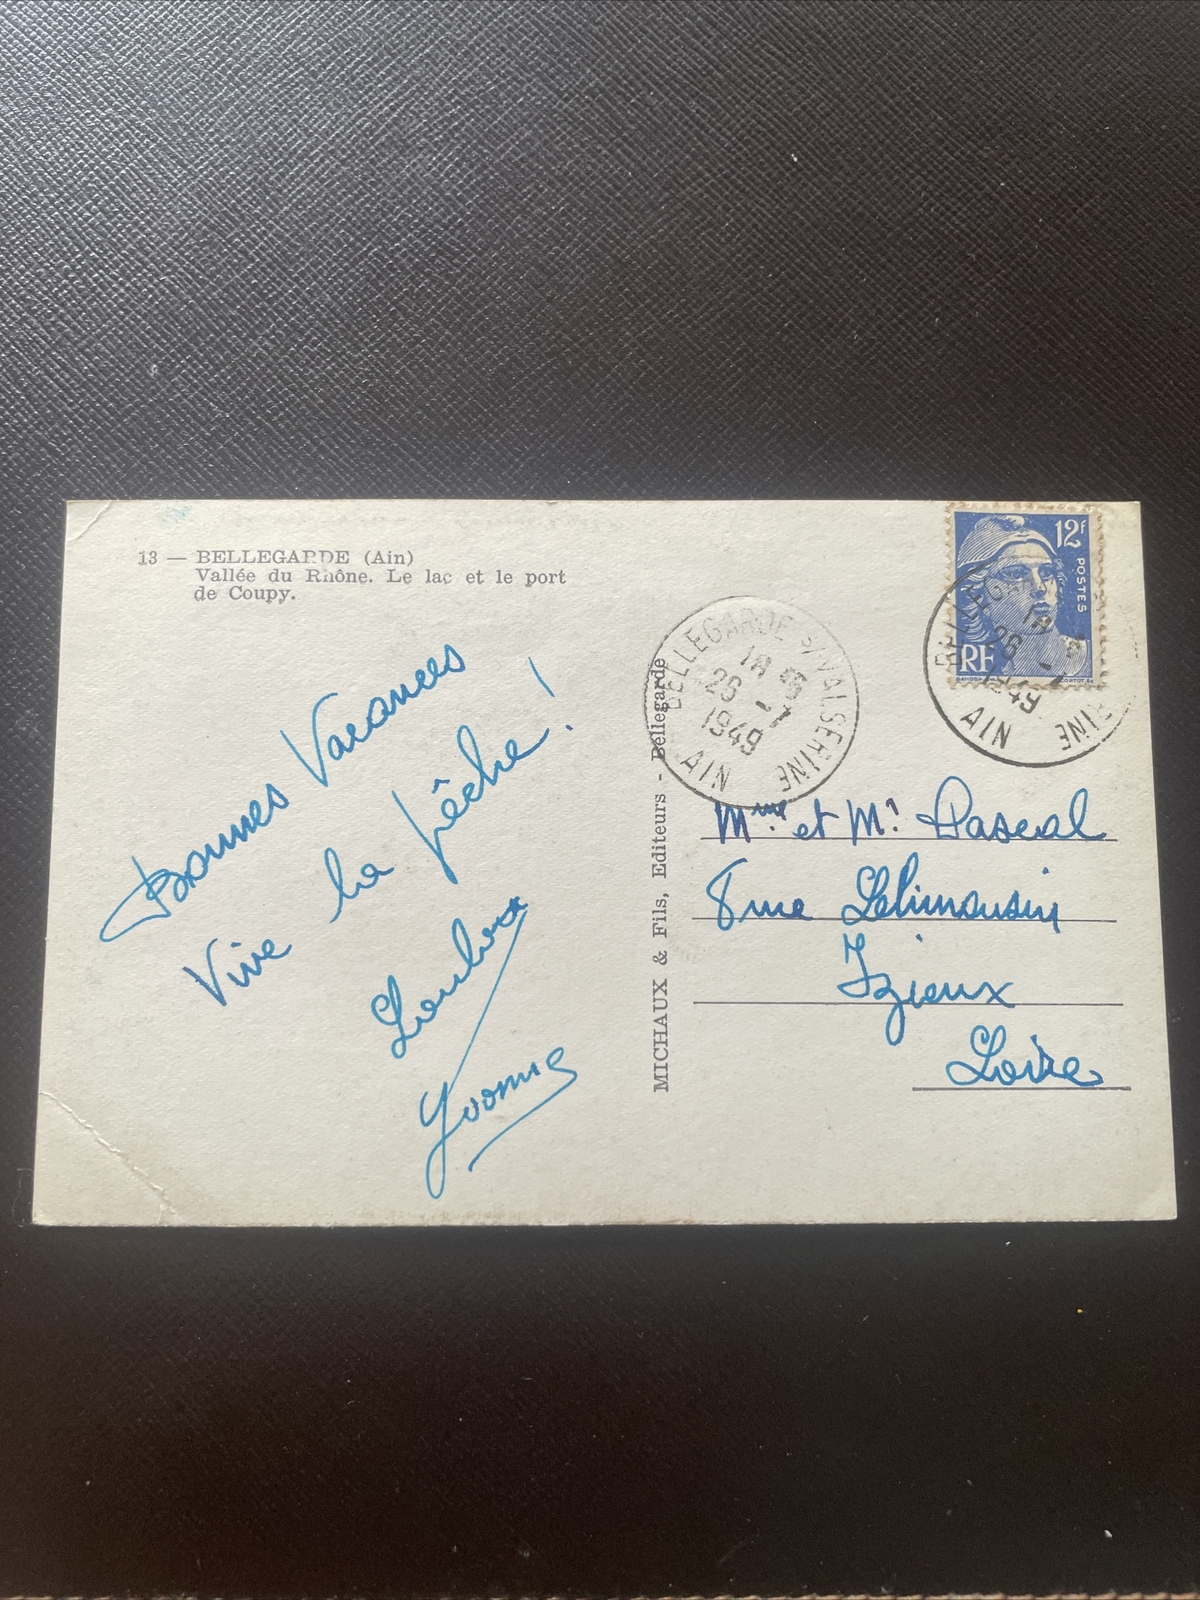 13 — BELLEGARDE (Ain)
Vallée du Rhône. Le lac et le port
de Coupy.
Bonnes Vacances
Vive la pêche!
Yvonne
MICHAUX & Fils, Editeurs - Bellegarde
BELLEGARDE S/VALSERINE
18 45
26 -7
1949
AIN
12f
POSTES
RF
BELLEG RINE
18
26 -7
1949
AIN
Mme et Mr Pascal
8 rue
Izieux
Loire